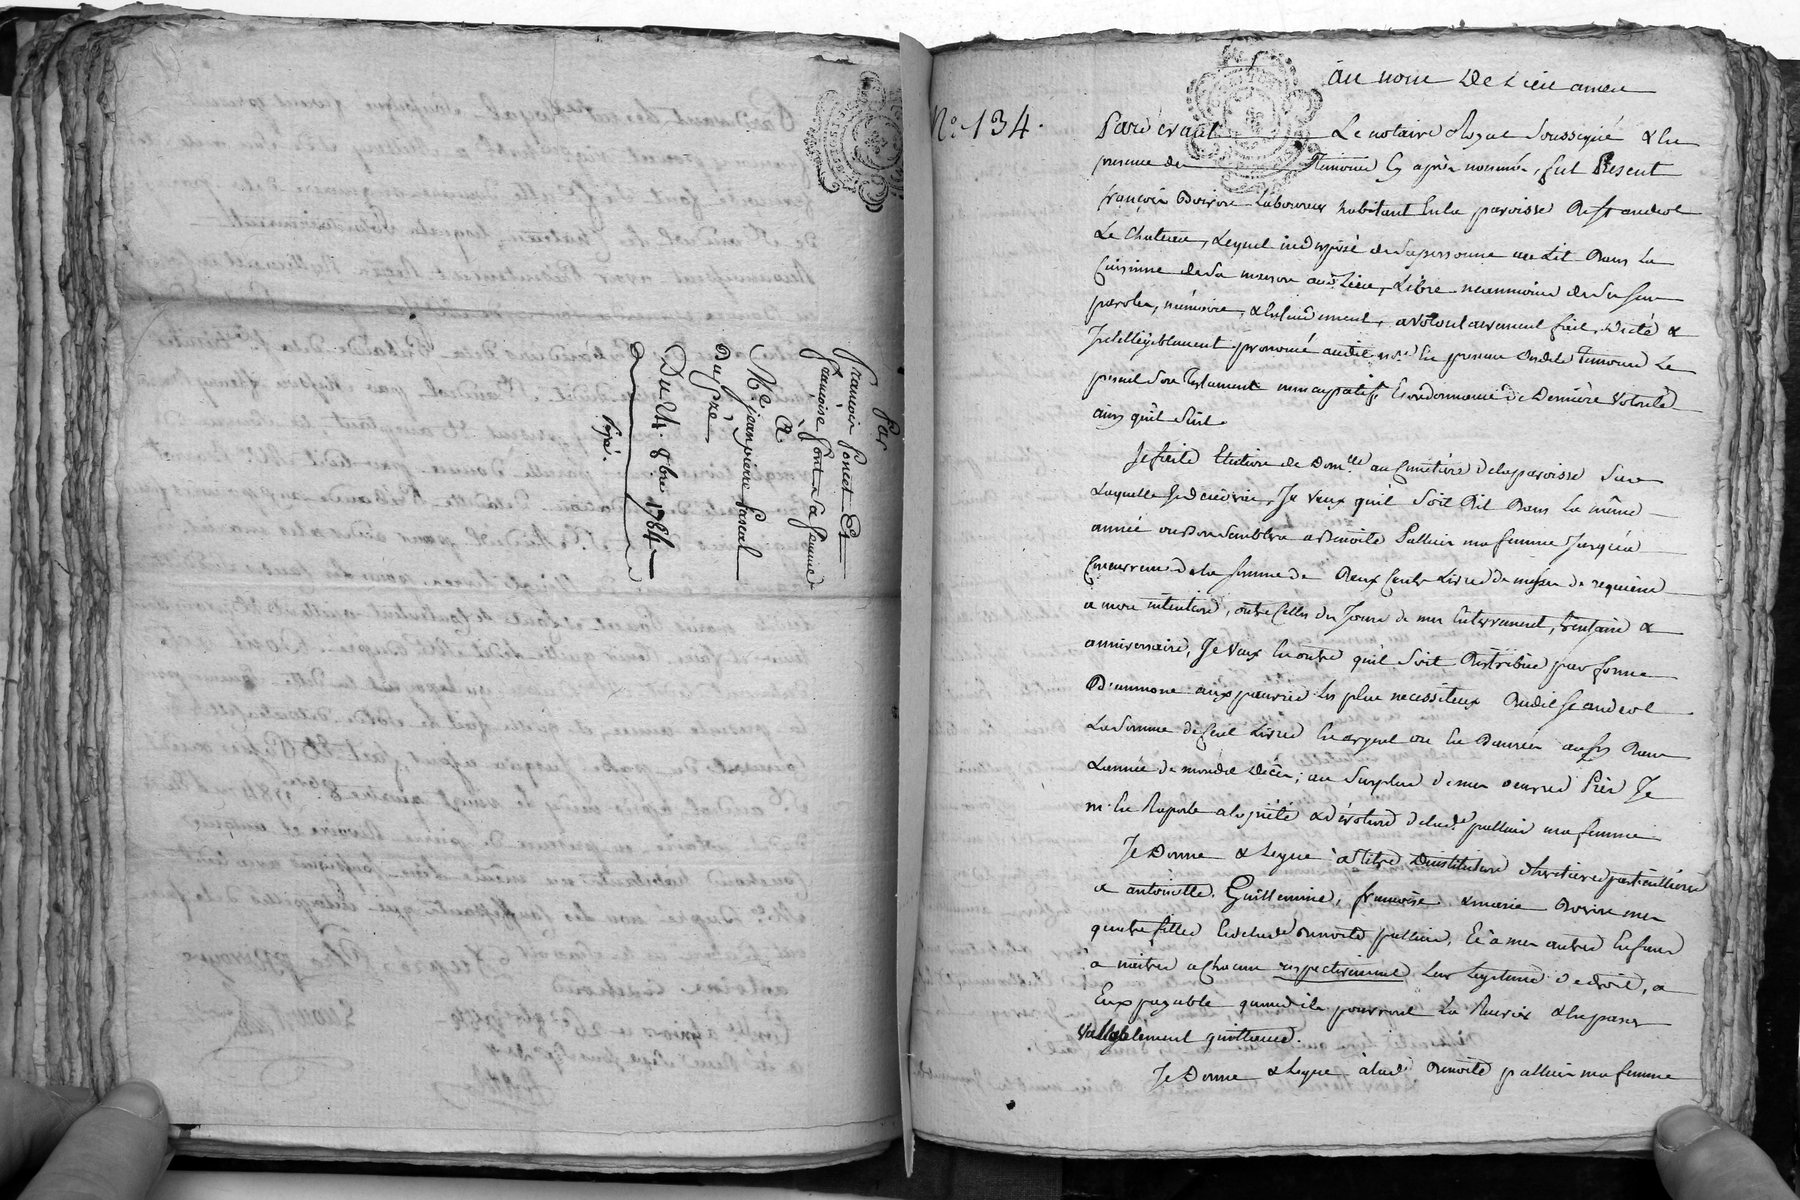 Par
François Poncet Et
françoise font sa femme
A
Me. jean pierre pascal
Dupré
Du 24. 8bre 1784
Expé.
N.o 134.
au nom De Dieu amen
Pardevant Le notaire Royal soussigné & En
presence des Temoins Cy après nommés, fut Present
françois Boiron Laboureur habitant En la paroisse De St andeol
Le Chateau, Lequel indisposé de sa personne au Lit Dans La
Cuisinne de sa maison aud. Lieu, Libre neanmoins de ses sens
parole, mémoire, & Entendement, a volontairement fait, dicté &
Intelligiblement prononcé audit no.re En presence Desdits Temoins Le
present son Testament nuncupatif, Et ordonnance De Derniere Volonté
ainsy qu'il suit.
Je fais Election de Dom.lle au Cimetière de la paroisse sur
Laquelle Je décéderai, Je veux qu'il soit Dit Dans La même
année ou Bon semblera a Benoite Pallein ma femme Jusqu'a
Concurrence de la somme de Deux Cents Livres de messes de requiem
a mon intention, outre Celles du Jour de mon Enterrement, trentaine &
anniversaire, Je veux En outre qu'il soit Distribué par forme
D'aumone aux pauvres les plus necessiteux Dudit St andeol
La somme de Cent Livres En argent ou En Denrées aussy Dans
L'année de mondit Décés; au surplus de mes oeuvres Pies Je
m'En Raporte a la piété & dévotion de lad.e pallein ma femme
Je Donne & Legue à Titre D'institution d'hoirie particulliere
a antoinette, Guillemine, françoise & marie Boiron mes
quatre filles & de lad.e Benoite pallein, Et à mes autres Enfans
à naitre a Chacun respectivement Leur Legitime de droit, a
Eux payable quand ils pourront La Recevoir & En passer
Vallablement quittance.
Je Donne & Legue à lad.e Benoite pallein ma femme